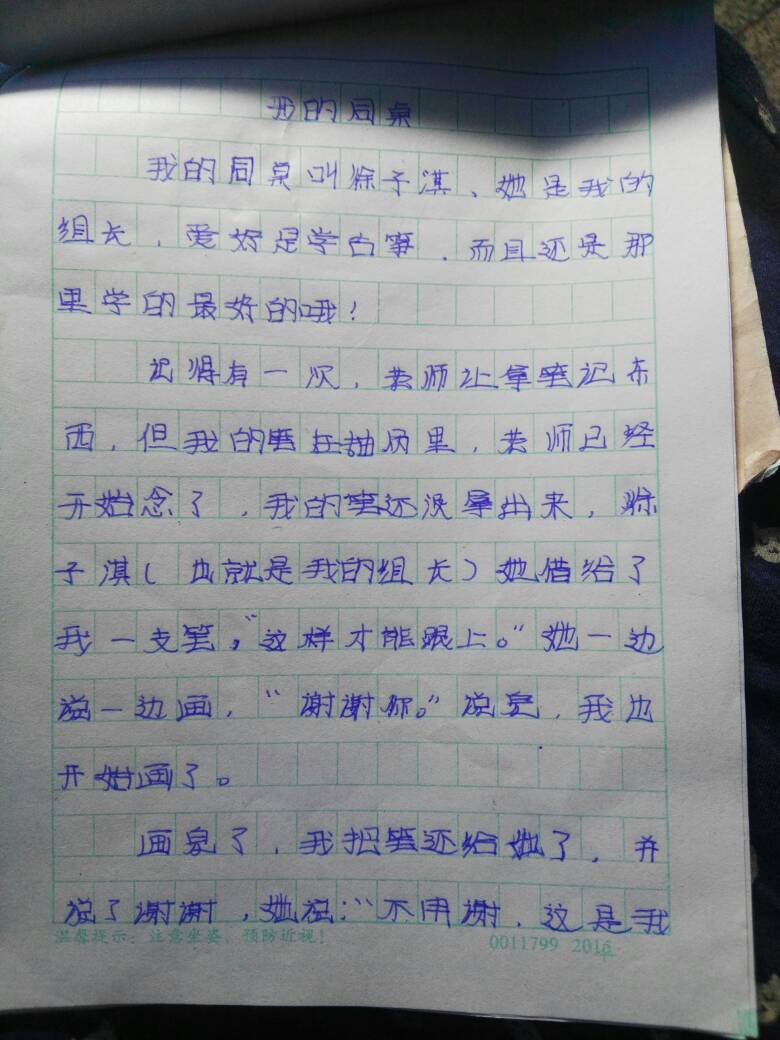 我的同桌
我的同桌叫徐子淇、她是我的
组长，爱好是学古筝．而且还是那
里学的最好的哦！
记得有一次，老师让拿笔记东
西，但我的笔在抽屉里，老师已经
开始念了，我的笔还没拿出来，徐
子淇（也就是我的组长）她借给了
我一支笔，“这样才能跟上。”她一边
说一边画，“谢谢你。”说完，我也
开始画了。
画完了，我把笔还给她了，并
说了谢谢，她说：“不用谢，这是我
温馨提示：注意坐姿、预防近视！ 0011799 2016